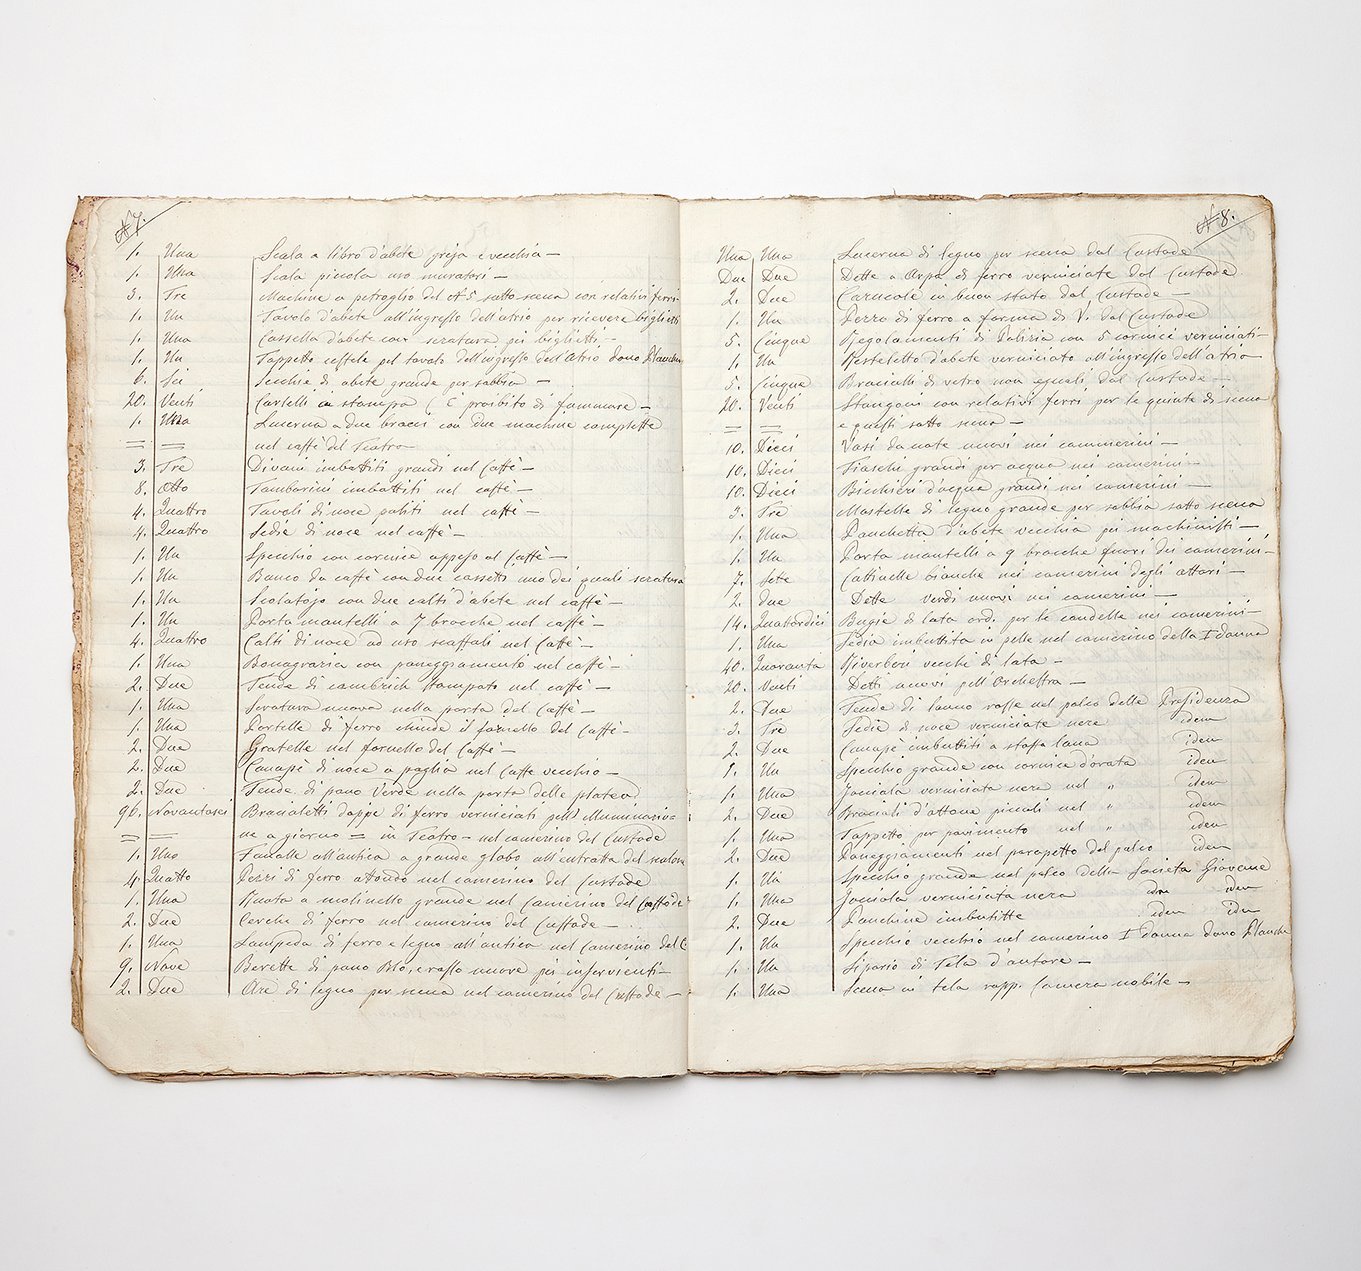 N 7.
1. Una Scala a libro d'abete greja e vecchia —
1. Una Scala piccola uso muratori —
3. Tre Machine a petroglio del N 5 sotto scena con relativi ferri
1. Un Tavolo d'abete all'ingresso dell'atrio per ricevere biglietti
1. Una Cassella d'abete con seratura pei biglietti —
1. Un Tappetto pel tavolo dell'ingresso dell'Atrio dono
6. Sei Secchie di abete grande per sabbia —
20. Venti Cartelli in stampa (È proibito di fummare —
1. Una Lucerna a due bracci con due machine complette
= = nel caffè del Teatro —
3. Tre Divani imbottiti grandi nel Caffè —
8. Otto Tamborini imbottiti nel caffè —
4. Quattro Tavoli di noce politi nel caffè —
4. Quattro Sedie di noce nel caffè —
1. Un Specchio con cornice appeso al Caffè —
1. Un Banco da caffè con due cassetti uno dei quali seratura
1. Un Scolatojo con due calti d'abete nel caffè —
1. Un Porta mantelli a 7 brocche nel caffè —
4. Quattro Calti di noce ad uso scaffali nel Caffè —
1. Una Bonagrazia con paneggiamento nel caffè —
2. Due Tende di cambrich stampato nel caffè —
1. Una Seratura nuova nella porta del Caffè —
1. Una Portella di ferro chiude il fornello del Caffè —
2. Due Gratelle nel fornello del Caffè —
2. Due Canapè di noce a paglia nel Caffe vecchio —
2. Due Tende di pano Verde nella porta delle platea
96. Novantasei Bracialetti doppi di ferro verniciati pell'illuminazio-
= = ne a giorno = in Teatro — nel camerino del Custode
1. Uno Fanalle all'antica a grande globo all'entrata del
4 Quatto Pezzi di ferro a tondo nel camerino del Custode
1. Una Ruota a molinello grande nel Camerino del Custode
2. Due Cerchi di ferro nel camerino del Custode —
1. Una Lampeda di ferro e legno all'antica nel Camerino del C
9. Nove Berette di pano Blò, e rosso nuove pei inservienti —
2. Due Are di legno per scena nel camerino del Custode —
N 8.
Una Una Lucerna di legno per scena dal Custode
Due Due Dette a Arpa di ferro verniciate dal Custode
2. Due Carucole in buon stato dal Custode —
1. Un Pezzo di ferro a forma di V. dal Custode
5. Cinque Regolamenti di Polizia con 5 cornici verniciati —
1. Un Resteletto d'abete verniciato all'ingresso dell'atrio
5. Cinque Bracialli di vetro non eguali dal Custode —
20. Venti Stangoni con relativi ferri per le quinte di scena
= = e questi sotto scena —
10. Dieci Vasi da note nuovi nei cammerini —
10. Dieci Fiaschi grandi per acqua nei camerini —
10. Dieci Bicchieri d'acqua grandi nei camerini —
3. Tre Mastelle di legno grande per sabbia sotto scena
1. Una Panchetta d'abete vecchia pei machinisti —
1. Un Porta mantelli a 9 brocche fuori dei camerini —
7. Sete Cattinelle bianche nei camerini degli attori —
2. Due Dette verdi nuove nei camerini —
14. Quattordici Bugie di lata ord. per le candelle nei camerini —
1. Una Sedia imbuttita in pelle nel camerino della I Donna
40. Quaranta Riverberi vecchi di lata —
20. Venti Detti nuovi pell'Orchestra —
2. Due Tende di lanno rosse nel palco delle Presidenza
3. Tre Sedie di noce verniciate nere idem
2. Due Canapè imbuttiti a stoffa lana idem
1. Un Specchio grande con cornice dorata idem
1. Una verniciata nera nel " idem
2. Due Braciali d'ottone piccoli nel " idem
1. Una Tappetto per pavimento nel " idem
2. Due Paneggiamenti nel parapetto del palco idem
1. Un Specchio grande nel palco della Società Giovene
1. Una verniciata nera idem idem
2. Due Panchine imbutitte idem idem
1. Un Specchio vecchio nel camerino I donna dono
1. Un Sipario di Tela d'autore —
1. Una Scena in tela rapp. Camera nobile —